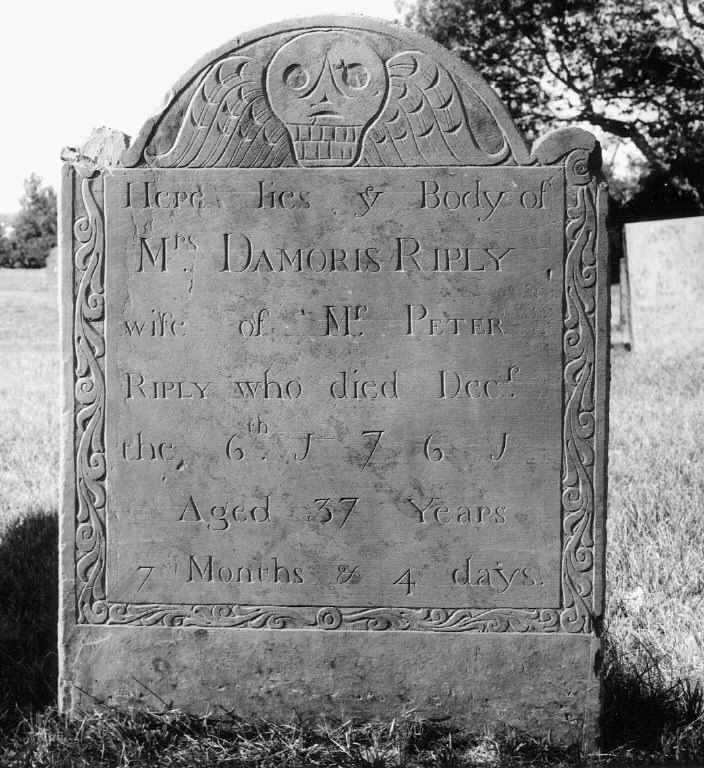 Here lies yͤ Body of
Mʳˢ DAMORIS RIPLY
wife of Mʳ. PETER
RIPLY who died Decʳ.
the 6ᵗʰ. J 7 6 J
Aged 37 Years
7 Months & 4 days.